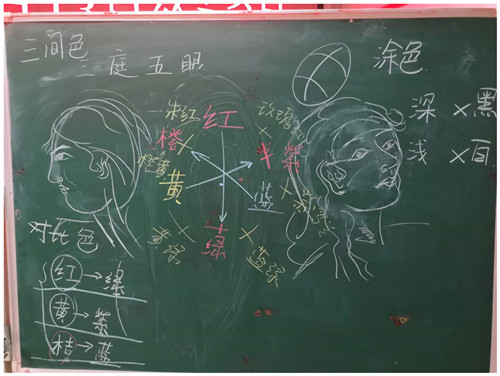 三间色
三庭五眼
涂色
朱红
红
玫瑰
橙
紫
橙黄
黄
蓝
绿
黄绿
蓝绿
深 × 黑
浅 × 白
对比色
红→绿
黄→紫
桔→蓝